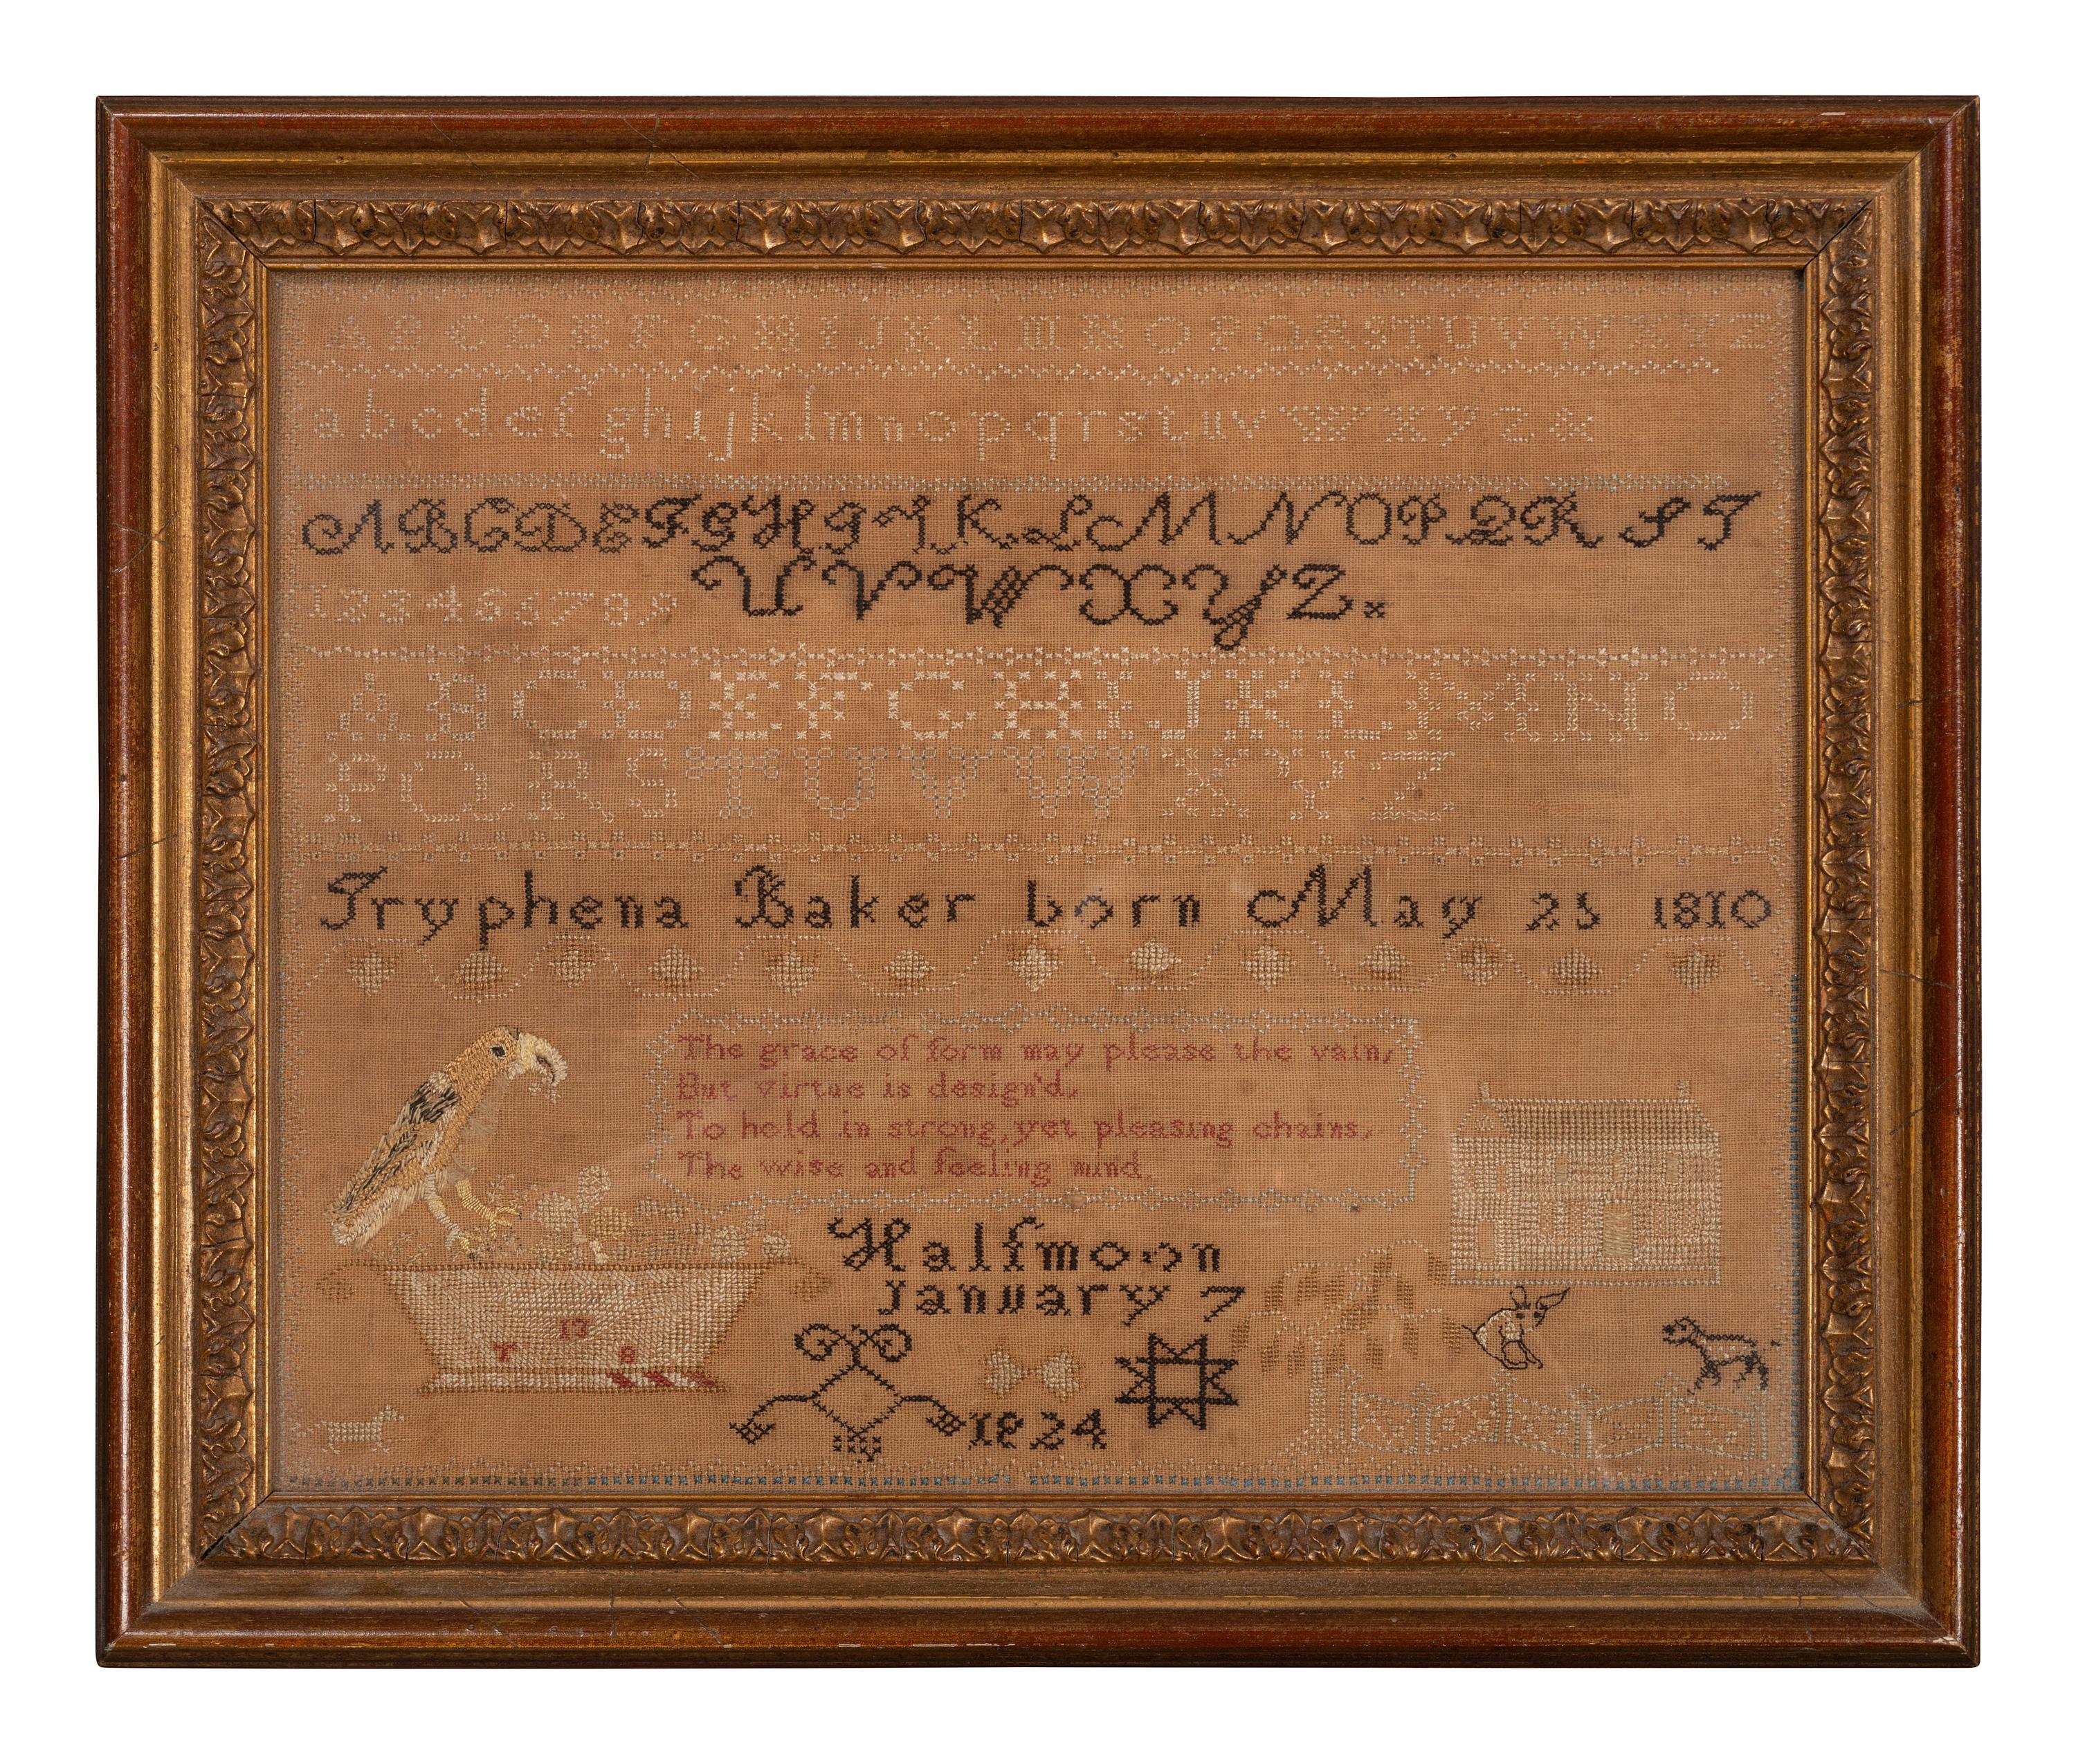 A B C D E F G H I J K L M N O P Q R S T U V W X Y Z
a b c d e f g h i j k l m n o p q r s t u v w x y z &
A B C D E F G H I J K L M N O P Q R S T
1 2 3 4 5 6 7 8 9 U V W X Y Z
A B C D E F G H I J K L M N O
P Q R S T U V W X Y Z
Tryphena Baker born May 25 1810
The grace of form may please the vain,
But virtue is design'd,
To hold in strong, yet pleasing chains,
The wise and feeling mind.
Halfmoon
January 7
13
T 8
1824